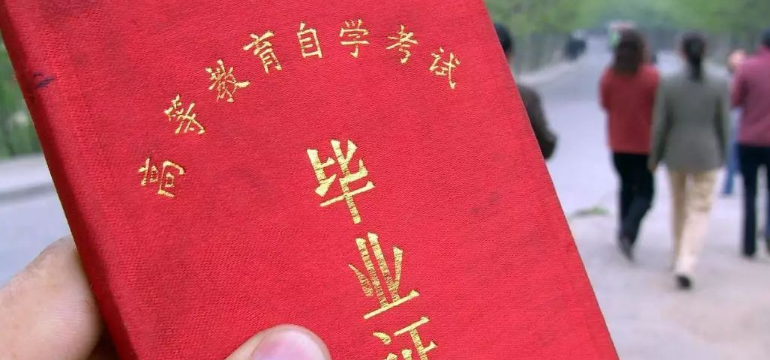 高等教育自学考试
毕业证